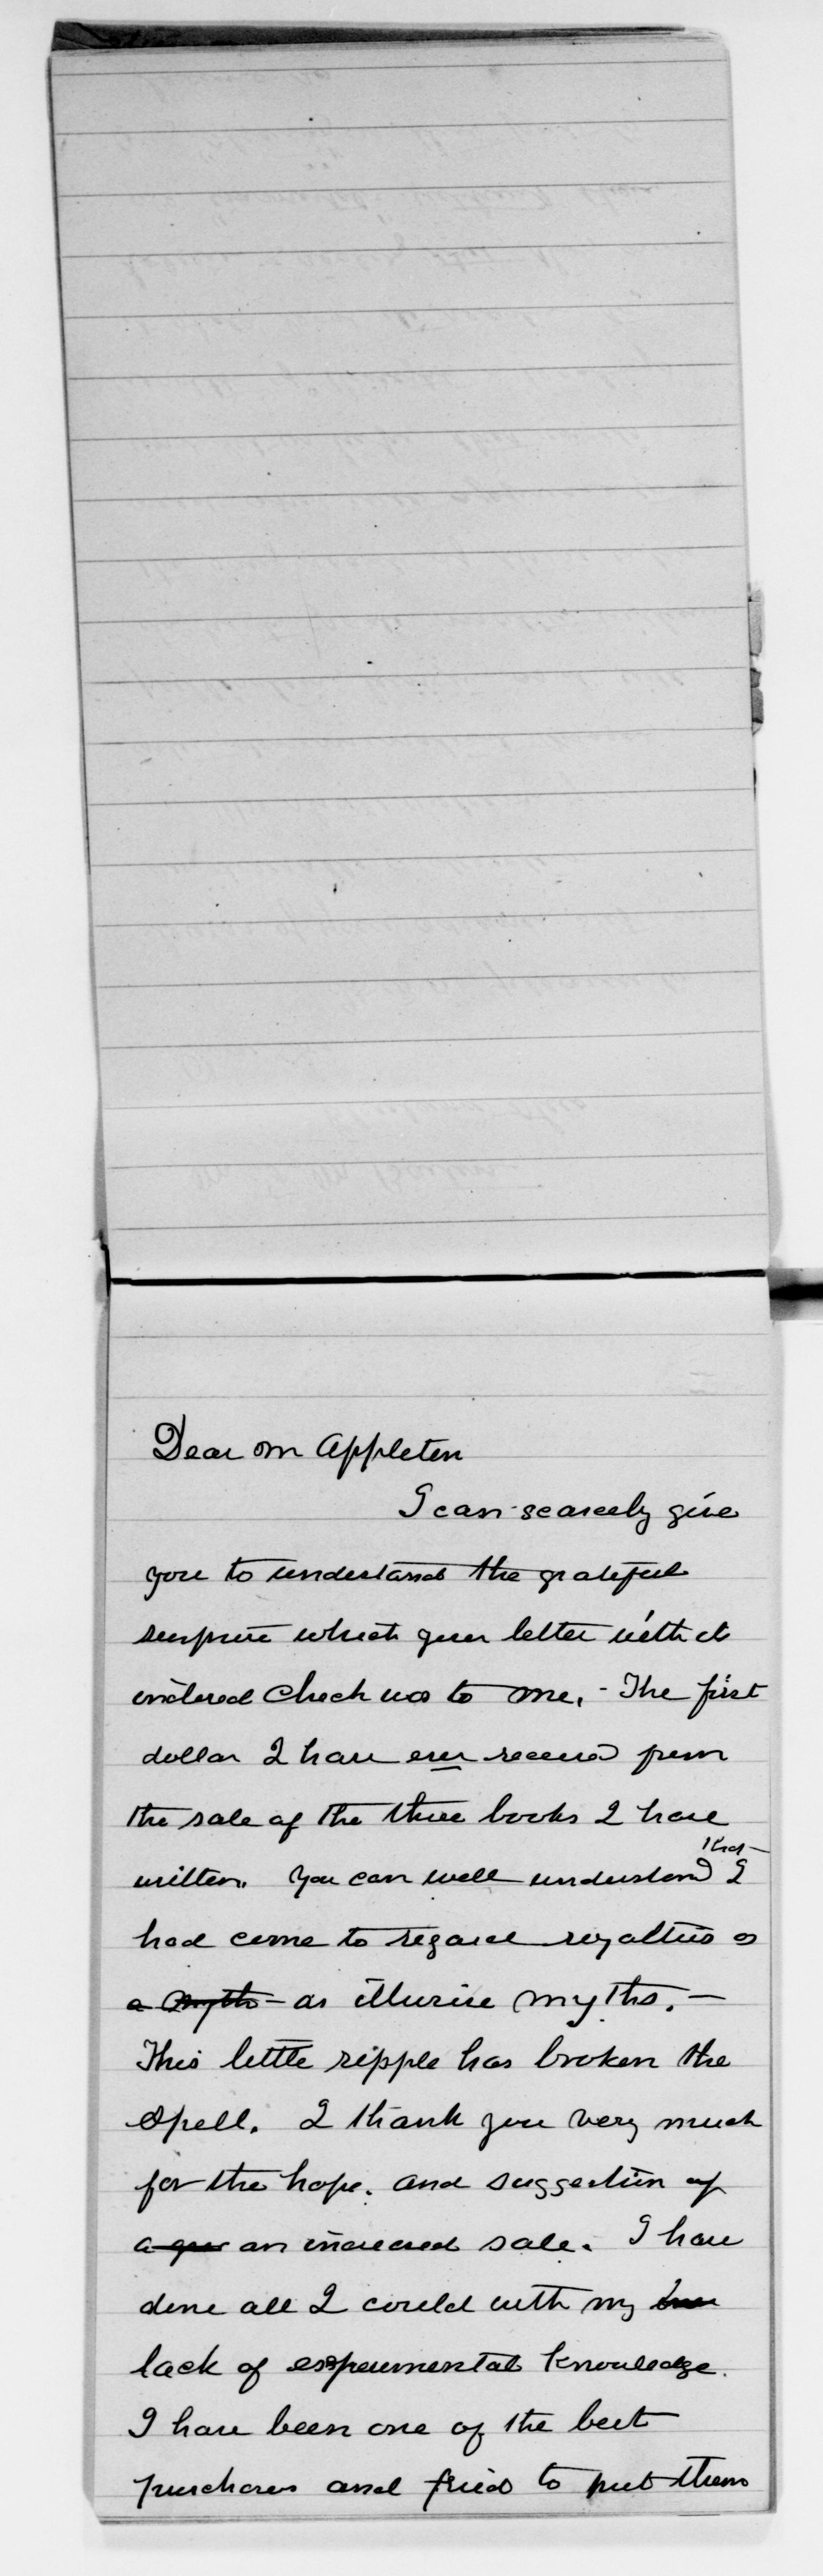 Dear Mr Appleton
I can scarcely give
you to understand the grateful
surprise which your letter with its
inclosed check was to me, - The first
dollar I have ever received from
the sale of the three books I have
written. You can well understand that I
had come to regard royalties as
a myth - as illusive myths. -
This little ripple has broken the
spell. I thank you very much
for the hope. and suggestion of
a an increased sale. I have
done all I could with my
lack of experimental knowledge.
I have been one of the best
purchasers and tried to put them